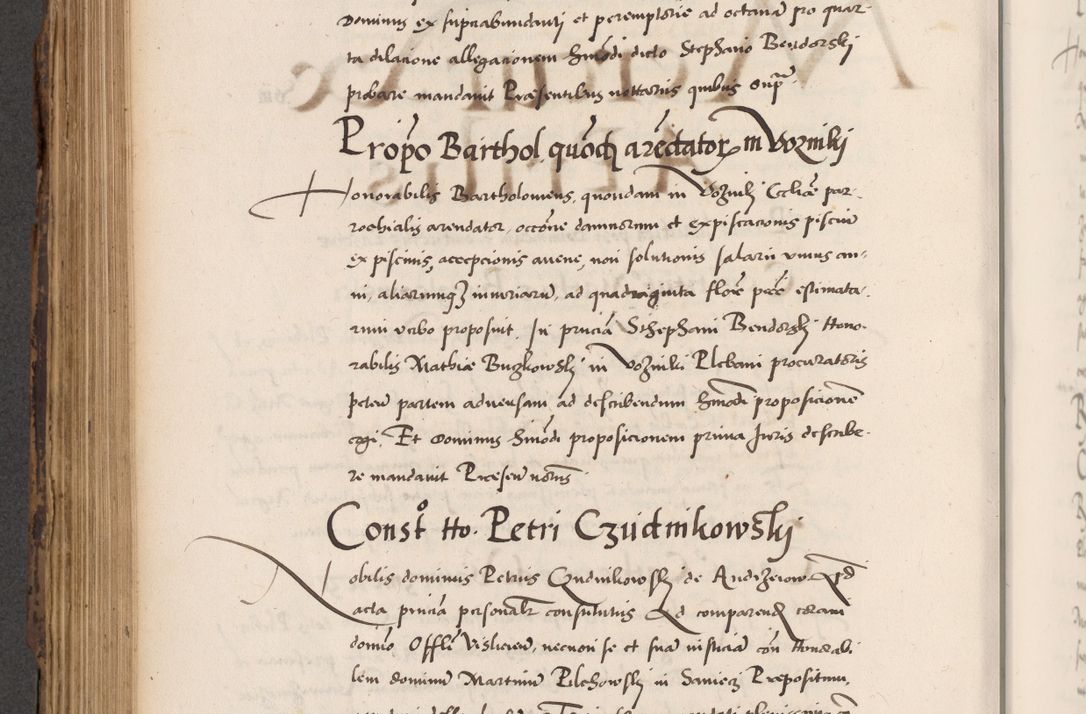 Dominus ex suprabundanti et peremptorie ad octavam pro quar-
ta dilacione allegacionem hmōdi dicto Stephano Bendorski
probare mandavit Præsentibus nottariis quibus supª
Propō Barthol quōdā arēdatorꝫ in Vozniki
Honorabilis Bartholomeus, quondam in Vozniki Eccliæ par-
rochialis arendator, occōne damnorum et expiscacionis piscium
ex piscinis, accepcionis avene, non solutionis salarii unius an-
ni, aliarumqꝫ iniuriarū, ad quadraginta flore pecē estimata-
rum verbo proposuit. In pñcia Sthephani Bendorski Hono-
rabilis Mathiæ Buzkowski in Vozniki Plebani procuratoris
peteñ partem adversam ad describendum hmōdi proposicionē
cogi. Et Dominus hmōdi proposicionem prima Juris describe-
re mandavit Præseñ notariis
Constº Ho. Petri Czudnikowski
Nobilis dominus Petrus Czudnikowski de Andzeiow Apud
acta pñcia personalr constitutus Ad comparendꝫ coram
domīo Offlī Visliceñ, necnon se et suā iusticiā coñ Honorabi-
lem dominum Martinum Pelchowski in Saniecz Prepositum,